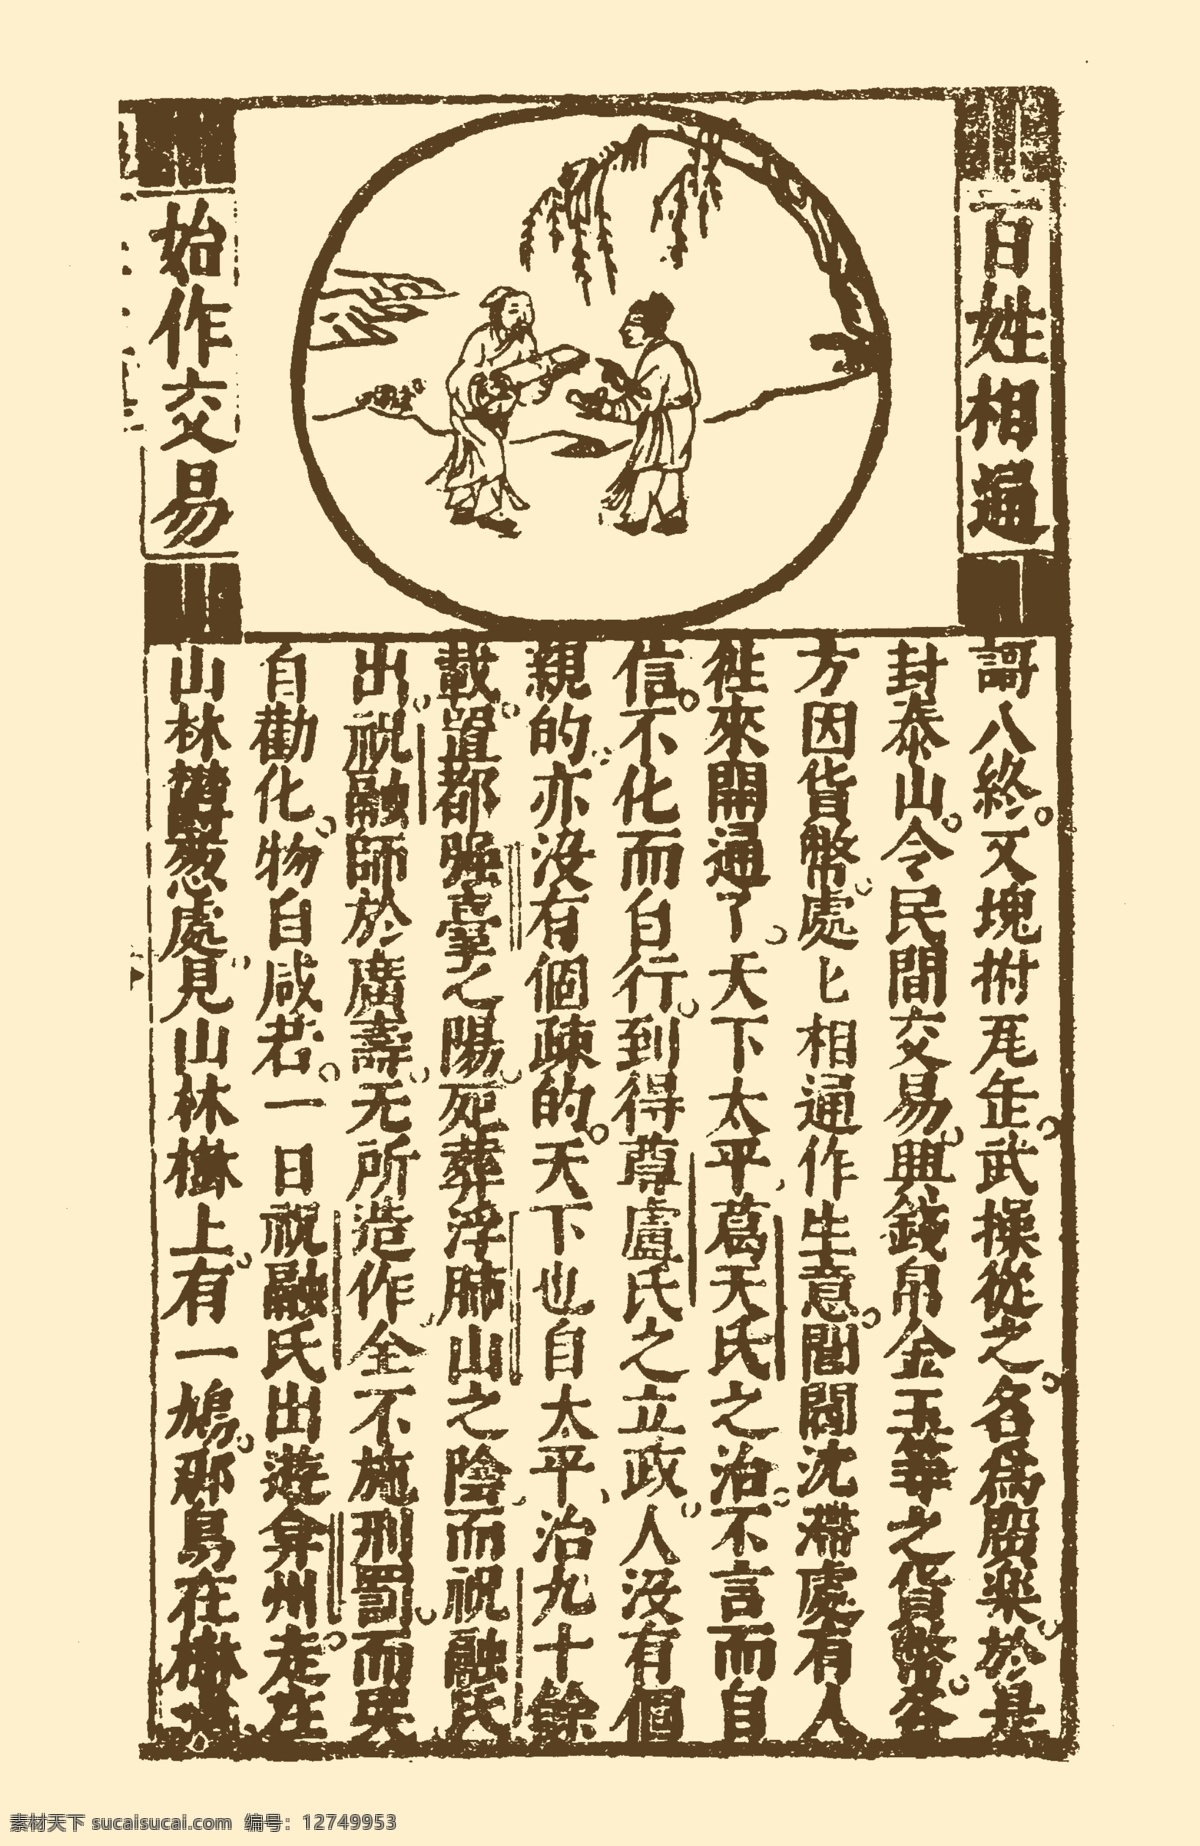 百姓相通
始作交易
謌八終又塊拊瓦缶武操從之名爲廣樂於是
封泰山令民間交易興錢帛金玉等之貨幣各
方因貨幣處匕相通作生意閭閻沈滯處有人
徃來開通了天下太平葛天氏之治不言而自
信不化而自行到得尊盧氏之立政人没有個
親的亦没有個疎的天下也自太平治九十餘
載置都强臺之陽死葬浮肺山之陰而祝融氏
出祝融師於廣壽无所造作全不施刑罰而民
自勸化物自咸若一日祝融氏出遊弇州走在
山林處見山林樹上有一鳩那鳥在樹
素材天下 sucaisucai.com 编号：12749953